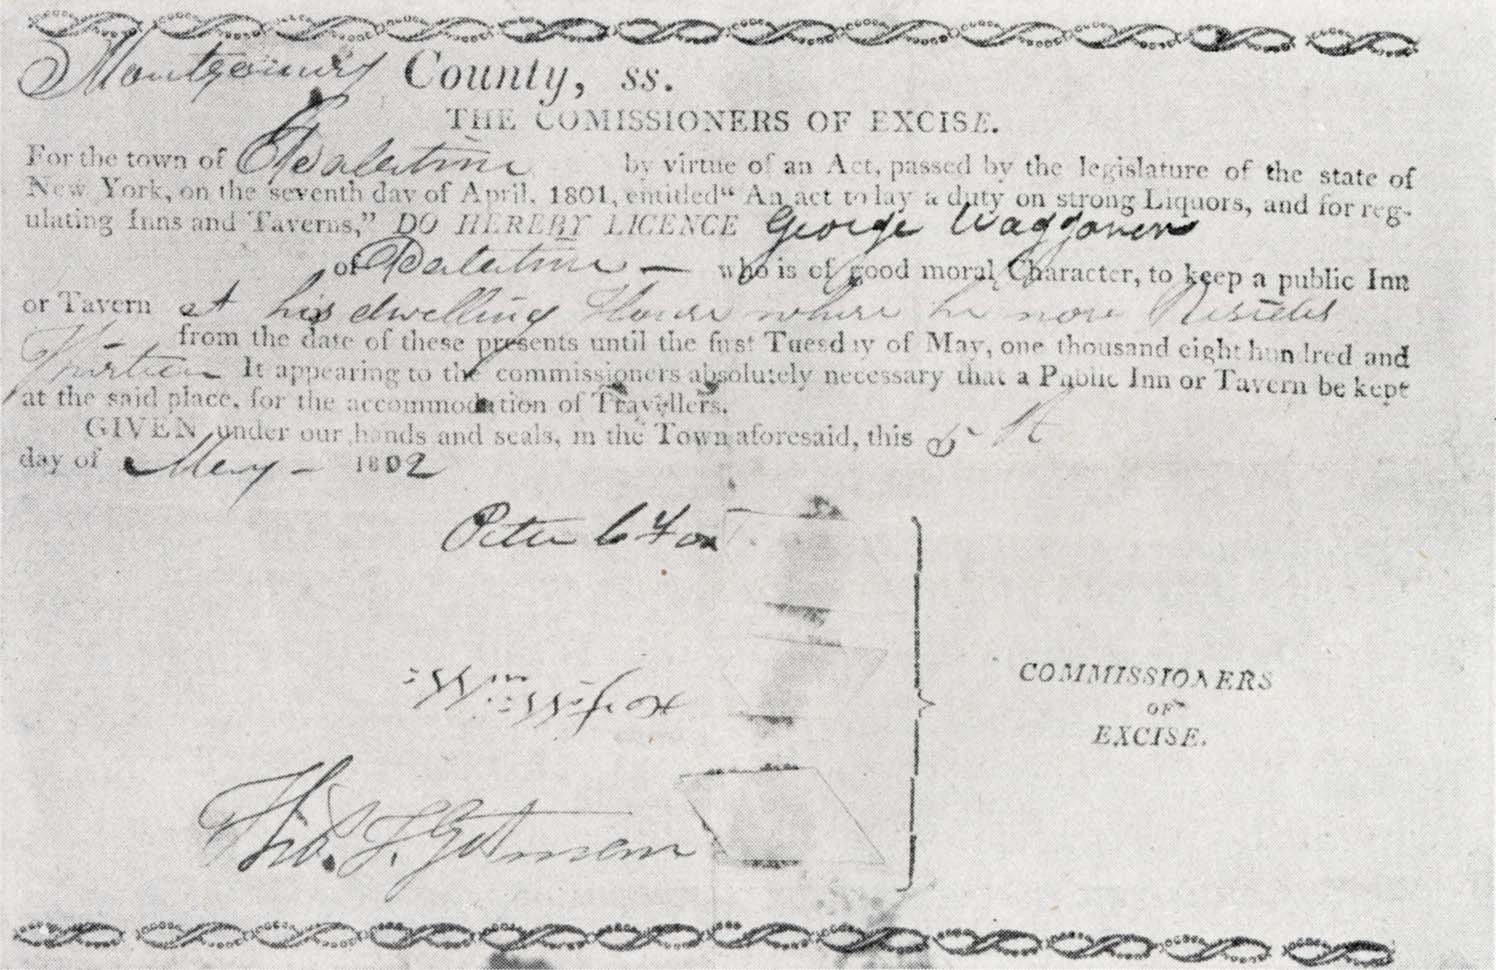 Montgomery County, ss.
THE COMISSIONERS OF EXCISE.
For the town of Palatine by virtue of an Act, passed by the legislature of the state of
New York, on the seventh day of April, 1801, entitled “ An act to lay a duty on strong Liquors, and for reg-
ulating Inns and Taverns,” DO HEREBY LICENCE George Waggoner
of Palatine — who is of good moral Character, to keep a public Inn
or Tavern at his dwelling House where he now Resides
from the date of these presents until the first Tuesday of May, one thousand eight hundred and
It appearing to the commissioners absolutely necessary that a Public Inn or Tavern be kept
at the said place, for the accommodation of Travellers.
GIVEN under our hands and seals, in the Town aforesaid, this
day of May — 1802
Peter C Fox
COMMISSIONERS
OF
EXCISE.